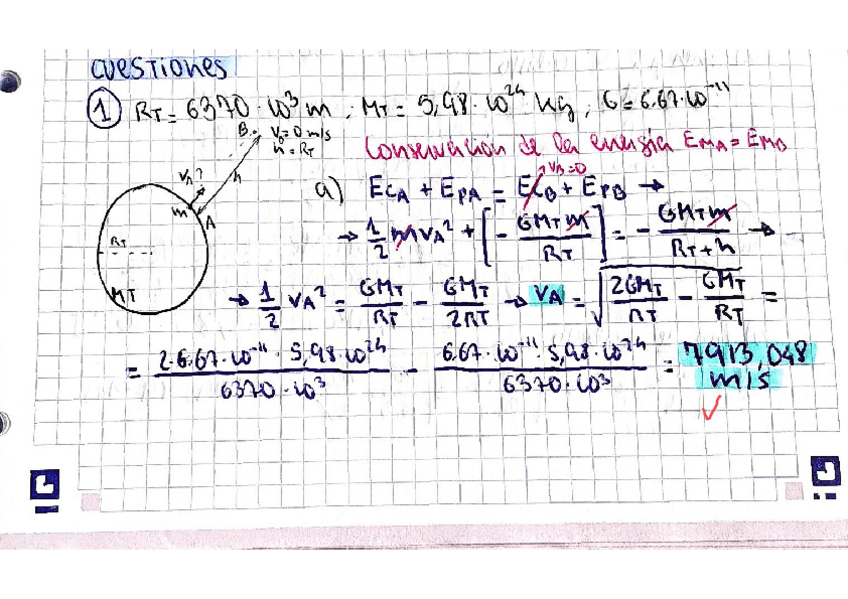 CUESTIONES
① RT = 6370·10³ m, MT = 5,98·10²⁴ kg, G = 6.67·10⁻¹¹
B. V₀=0 m/s
h = RT
Conservación de la energía EMA = EMB
VA?
h
m
A
RT
MT
a) ECA + EPA = ECB + EPB →
VB=0
→ 1/2 mVA² + [- GMTm/RT] = - GMTm/(RT+h) →
→ 1/2 VA² = GMT/RT - GMT/2RT → VA = √(2GMT/RT - GMT/RT) =
= 2·6.67·10⁻¹¹·5,98·10²⁴/6370·10³ - 6.67·10⁻¹¹·5,98·10²⁴/6370·10³ = 7913,048 m/s